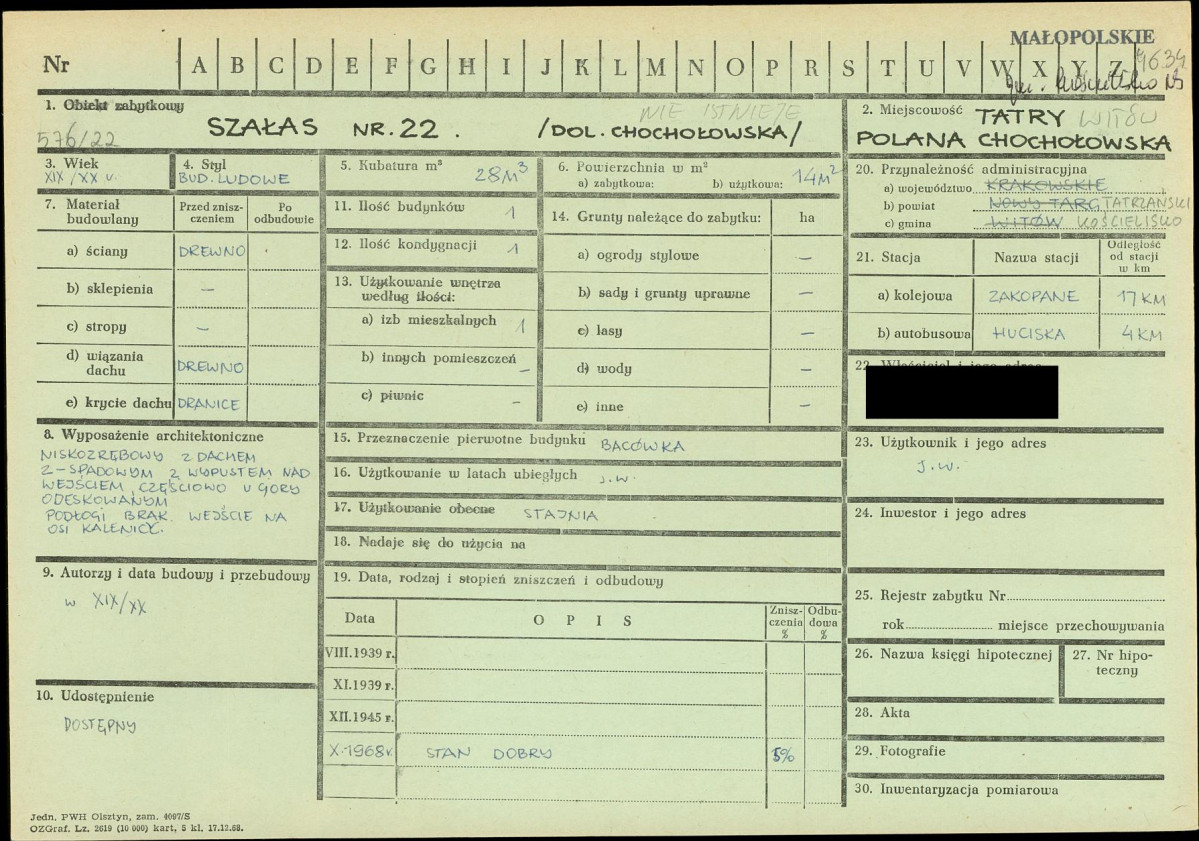 MAŁOPOLSKIE
Nr A B C D E F G H I J K L M N O P R S T U V W X Y Z
4634
1. Obiekt zabytkowy
NIE ISTNIEJE
576/22
SZAŁAS NR. 22. /DOL. CHOCHOŁOWSKA/
2. Miejscowość TATRY WITÓW
POLANA CHOCHOŁOWSKA
3. Wiek
XIX/XX w.
4. Styl
BUD. LUDOWE
5. Kubatura m³
28M³
6. Powierzchnia w m²
a) zabytkowa: b) użytkowa: 14M²
7. Materiał budowlany
Przed zniszczeniem
Po odbudowie
a) ściany DREWNO
b) sklepienia —
c) stropy —
d) wiązania dachu DREWNO
e) krycie dachu DRANICE
8. Wyposażenie architektoniczne
NISKOZRĘBOWY Z DACHEM
2-SPADOWYM Z WYPUSTEM NAD
WEJŚCIEM, CZĘŚCIOWO U GÓRY
ODESKOWANYM
PODŁOGI BRAK. WEJŚCIE NA
OSI KALENICY.
9. Autorzy i data budowy i przebudowy
w XIX/XX
10. Udostępnienie
DOSTĘPNY
11. Ilość budynków 1
12. Ilość kondygnacji 1
13. Użytkowanie wnętrza
według ilości:
a) izb mieszkalnych 1
b) innych pomieszczeń —
c) piwnic —
14. Grunty należące do zabytku: ha
a) ogrody stylowe —
b) sady i grunty uprawne —
c) lasy —
d) wody —
e) inne —
15. Przeznaczenie pierwotne budynku BACÓWKA
16. Użytkowanie w latach ubiegłych j.w.
17. Użytkowanie obecne STAJNIA
18. Nadaje się do użycia na
19. Data, rodzaj i stopień zniszczeń i odbudowy
Data OPIS Zniszczenia % Odbudowa %
VIII.1939 r.
XI.1939 r.
XII.1945 r.
X.1968r. STAN DOBRY 5%
20. Przynależność administracyjna
a) województwo KRAKOWSKIE
b) powiat NOWY TARG TATRZAŃSKI
c) gmina WITÓW KOŚCIELISKO
21. Stacja Nazwa stacji Odległość od stacji w km
a) kolejowa ZAKOPANE 17 KM
b) autobusowa HUCISKA 4 KM
22. Właściciel i jego adres
23. Użytkownik i jego adres
j.w.
24. Inwestor i jego adres
25. Rejestr zabytku Nr
rok miejsce przechowywania
26. Nazwa księgi hipotecznej
27. Nr hipoteczny
28. Akta
29. Fotografie
30. Inwentaryzacja pomiarowa
Jedn. PWH Olsztyn, zam. 4007/S
OZGraf. Lz. 2619 (10 000) kart. 5 kl. 17.12.68.